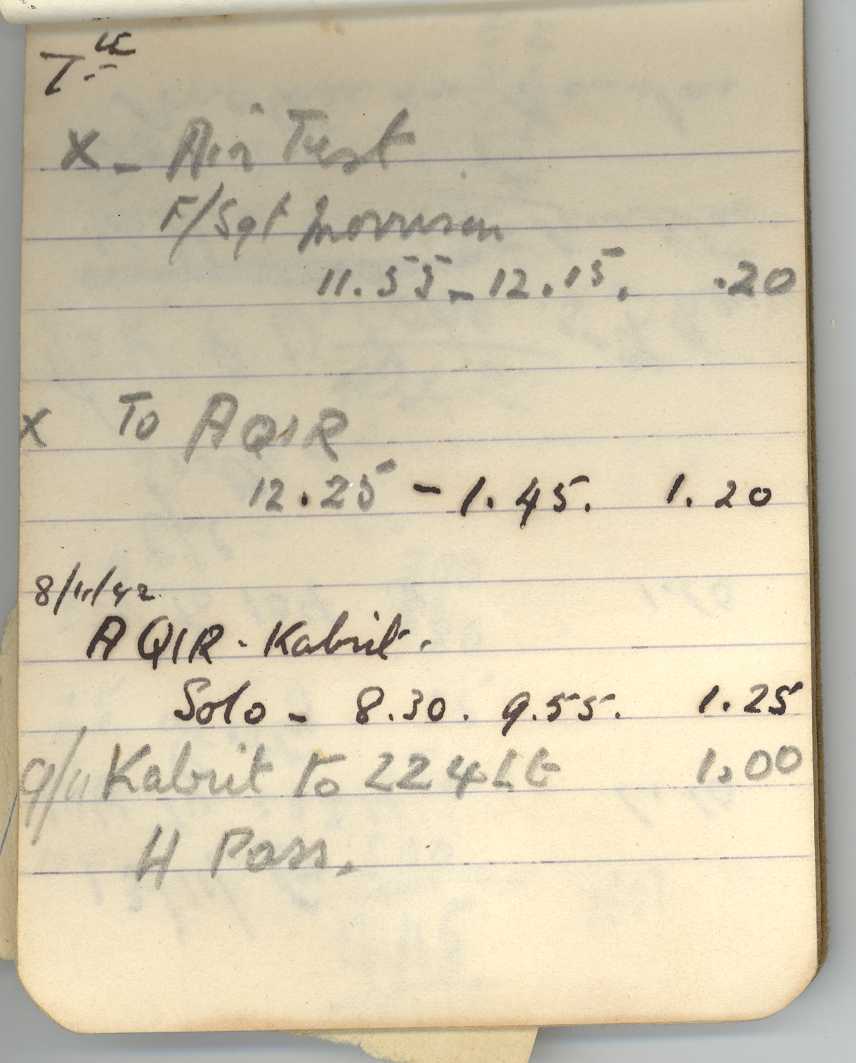 7th
X - Air Test
F/Sgt Morrison
11.55 - 12.15. .20
X To AQIR
12.25 - 1.45. 1.20
8/11/42
AQIR - Kabrit.
Solo - 8.30. 9.55. 1.25
9/11 Kabrit to 224 LG 1.00
H Pass.